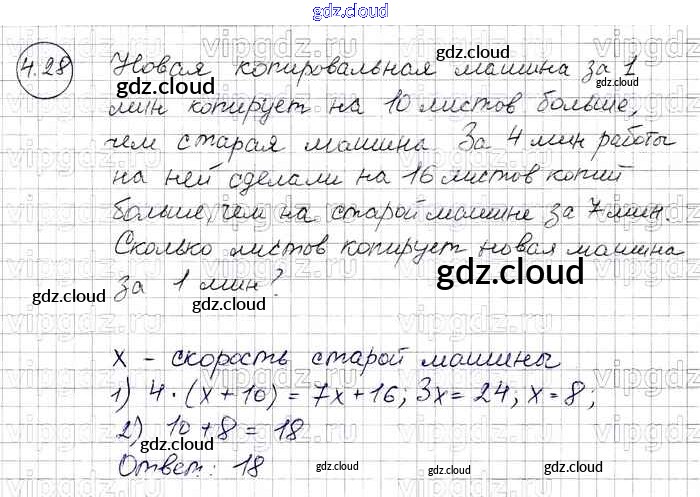 gdz.cloud
4.28 Новая копировальная машина за 1
мин копирует на 10 листов больше,
чем старая машина. За 4 мин работы
на ней сделали на 16 листов копий
больше, чем на старой машине за 7 мин.
Сколько листов копирует новая машина
за 1 мин?
x - скорость старой машины
1) 4·(x+10) = 7x+16; 3x = 24, x = 8;
2) 10+8 = 18
Ответ: 18
gdz.cloud
gdz.cloud
gdz.cloud
gdz.cloud
gdz.cloud
gdz.cloud
gdz.cloud
gdz.cloud
gdz.cloud
gdz.cloud
gdz.cloud
vipgdz.ru